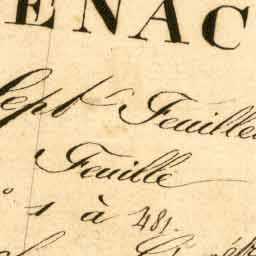 ENAC
Sept Feuilles
Feuille
° 1 à 481.